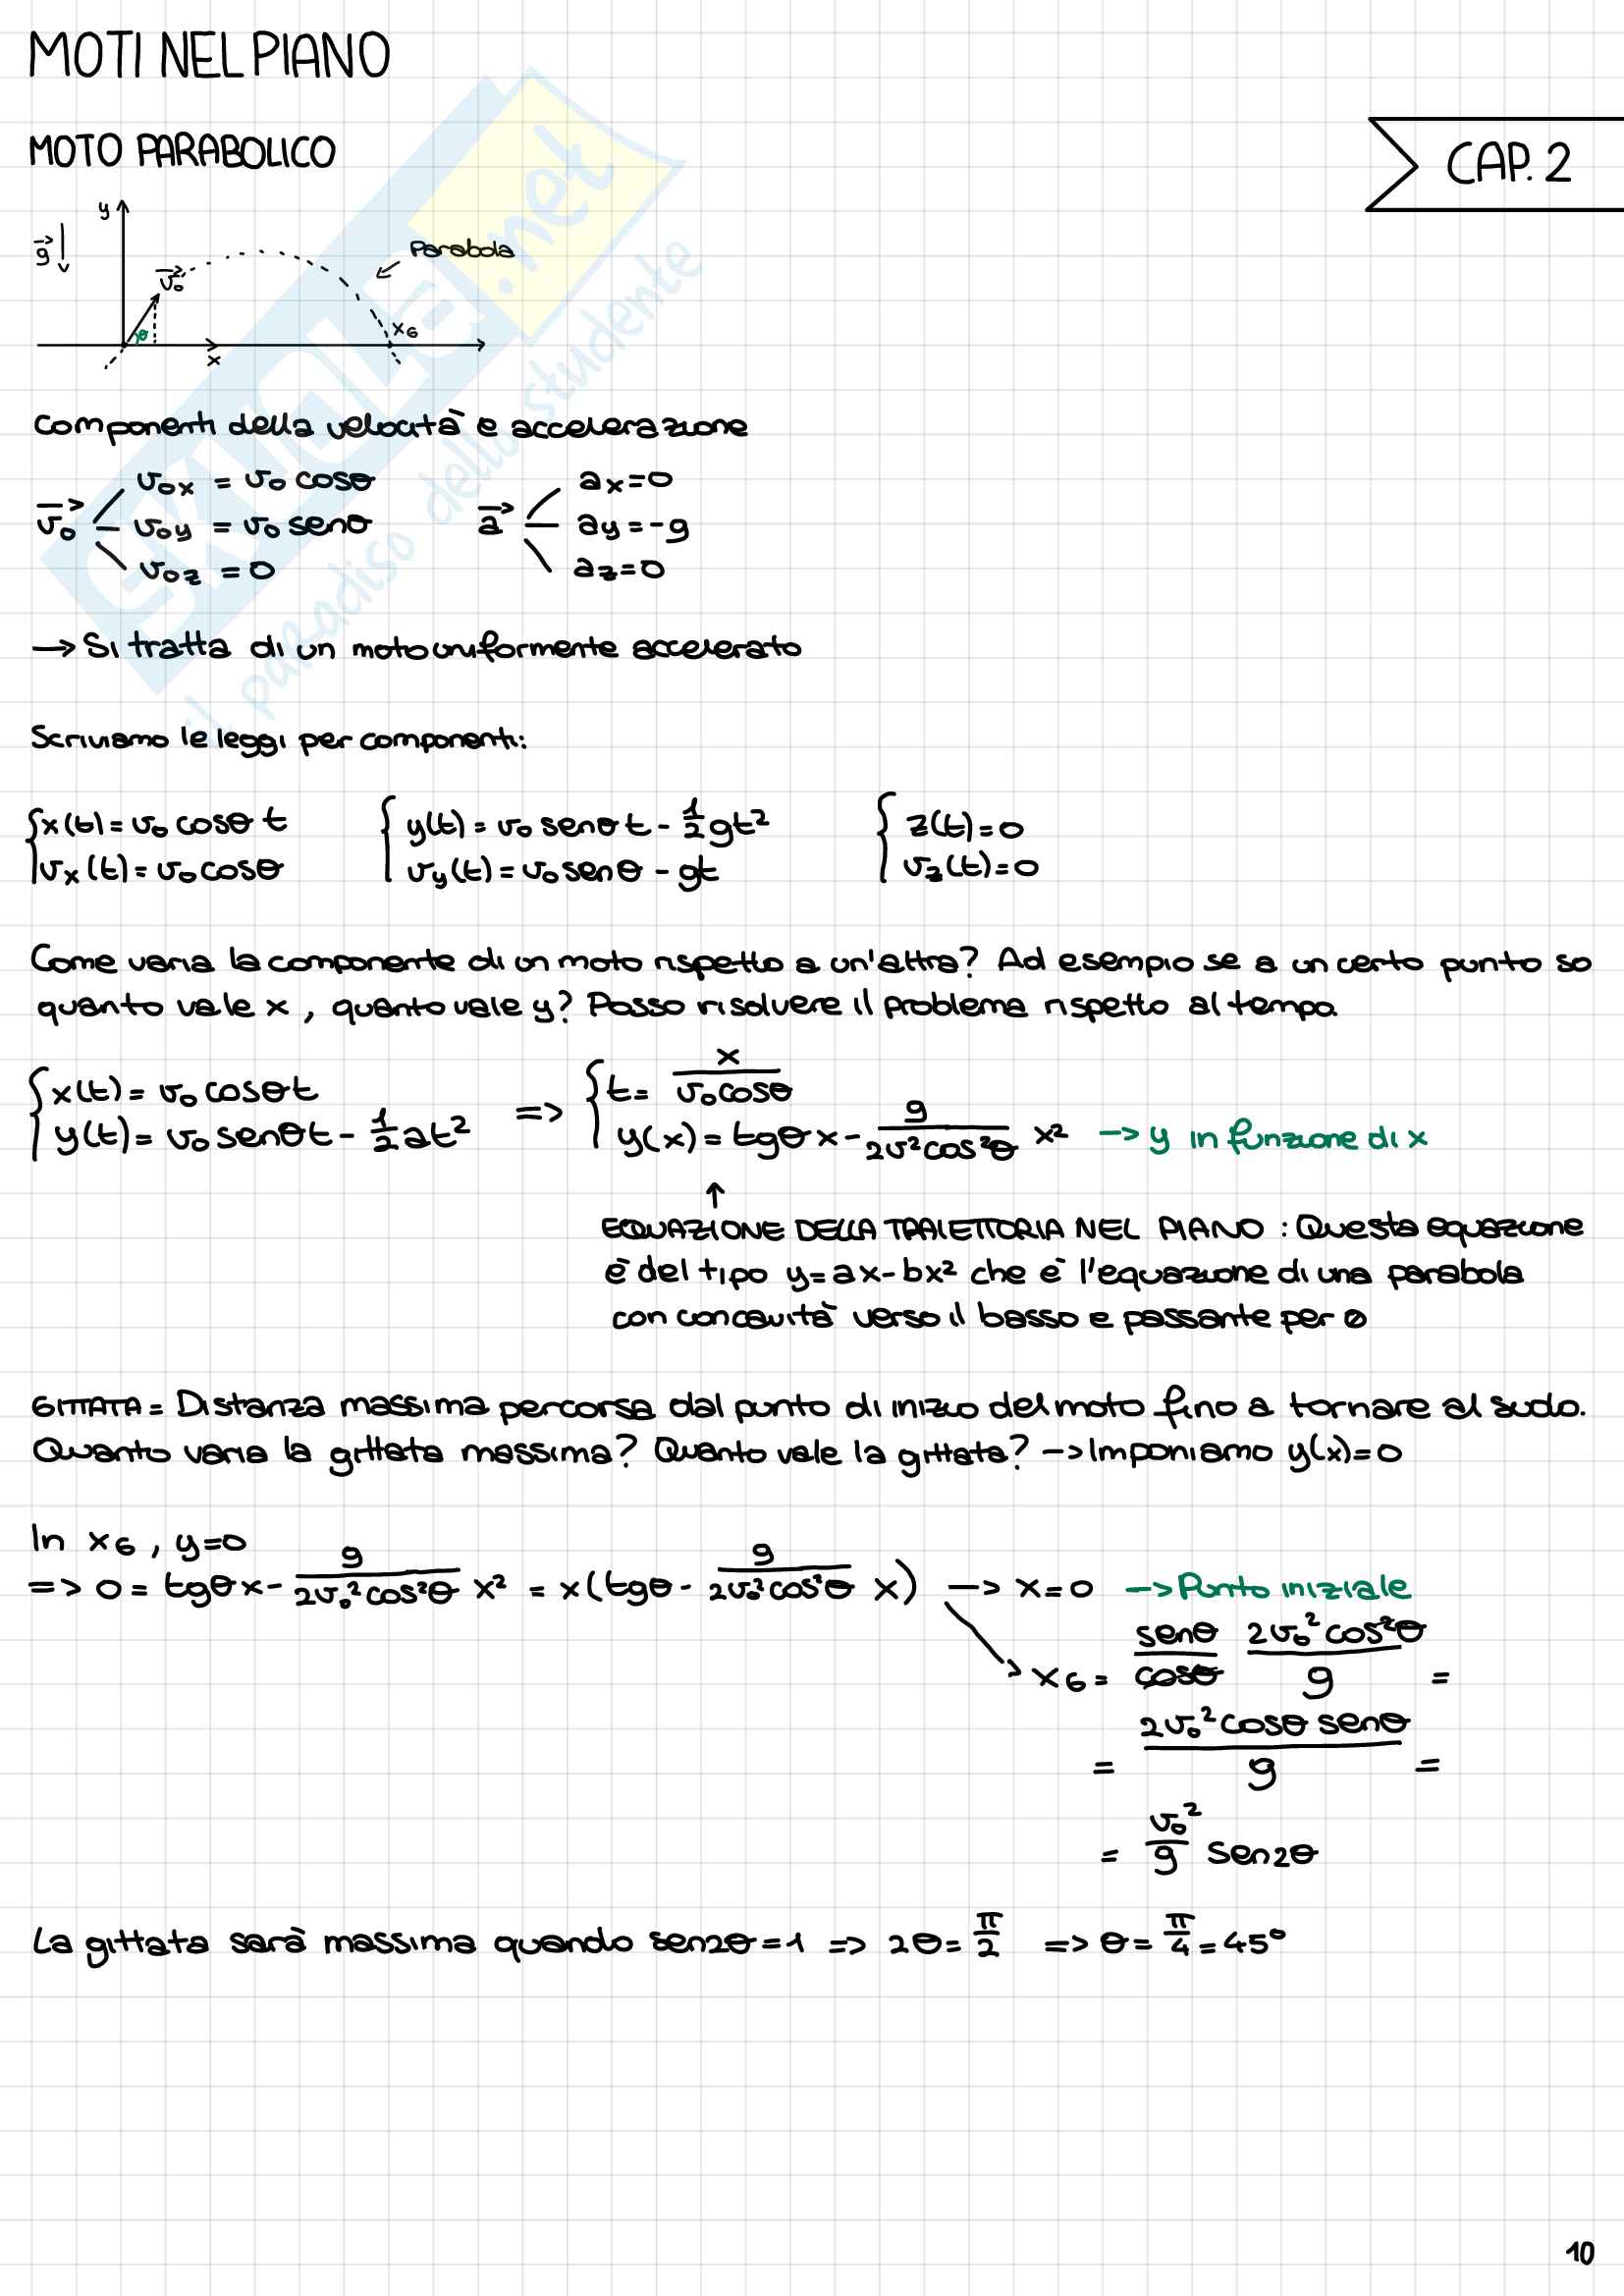 MOTI NEL PIANO
MOTO PARABOLICO
CAP. 2
y
g⃗
v⃗₀
Parabola
θ
x_G
x
Componenti della velocità e accelerazione
v⃗₀ v₀ₓ = v₀ cosθ
v₀y = v₀ senθ
v₀z = 0
a⃗ aₓ=0
ay=-g
az=0
→ Si tratta di un moto uniformemente accelerato
Scriviamo le leggi per componenti:
{ x(t) = v₀ cosθ t
vₓ(t) = v₀ cosθ
{ y(t) = v₀ senθ t - 1/2 gt²
vy(t) = v₀ senθ - gt
{ z(t)=0
vz(t)=0
Come varia la componente di un moto rispetto a un'altra? Ad esempio se a un certo punto so
quanto vale x, quanto vale y? Posso risolvere il problema rispetto al tempo.
{ x(t) = v₀ cosθt
y(t) = v₀ senθt - 1/2 at²
=> { t = x / v₀cosθ
y(x) = tgθ x - g / 2v²cos²θ x² → y in funzione di x
↑
EQUAZIONE DELLA TRAIETTORIA NEL PIANO : Questa equazione
è del tipo y=ax-bx² che è l'equazione di una parabola
con concavità verso il basso e passante per 0
GITTATA = Distanza massima percorsa dal punto di inizio del moto fino a tornare al suolo.
Quanto varia la gittata massima? Quanto vale la gittata? → Imponiamo y(x)=0
In x_G, y=0
=> 0 = tgθ x - g / 2v₀²cos²θ x² = x(tgθ - g / 2v₀²cos²θ x) → x=0 → Punto iniziale
→ x_G = senθ / cosθ 2v₀²cos²θ / g =
= 2v₀²cosθ senθ / g =
= v₀² / g sen2θ
La gittata sarà massima quando sen2θ=1 => 2θ= π/2 => θ= π/4 = 45°
10
SKUOLA.net
il paradiso dello studente